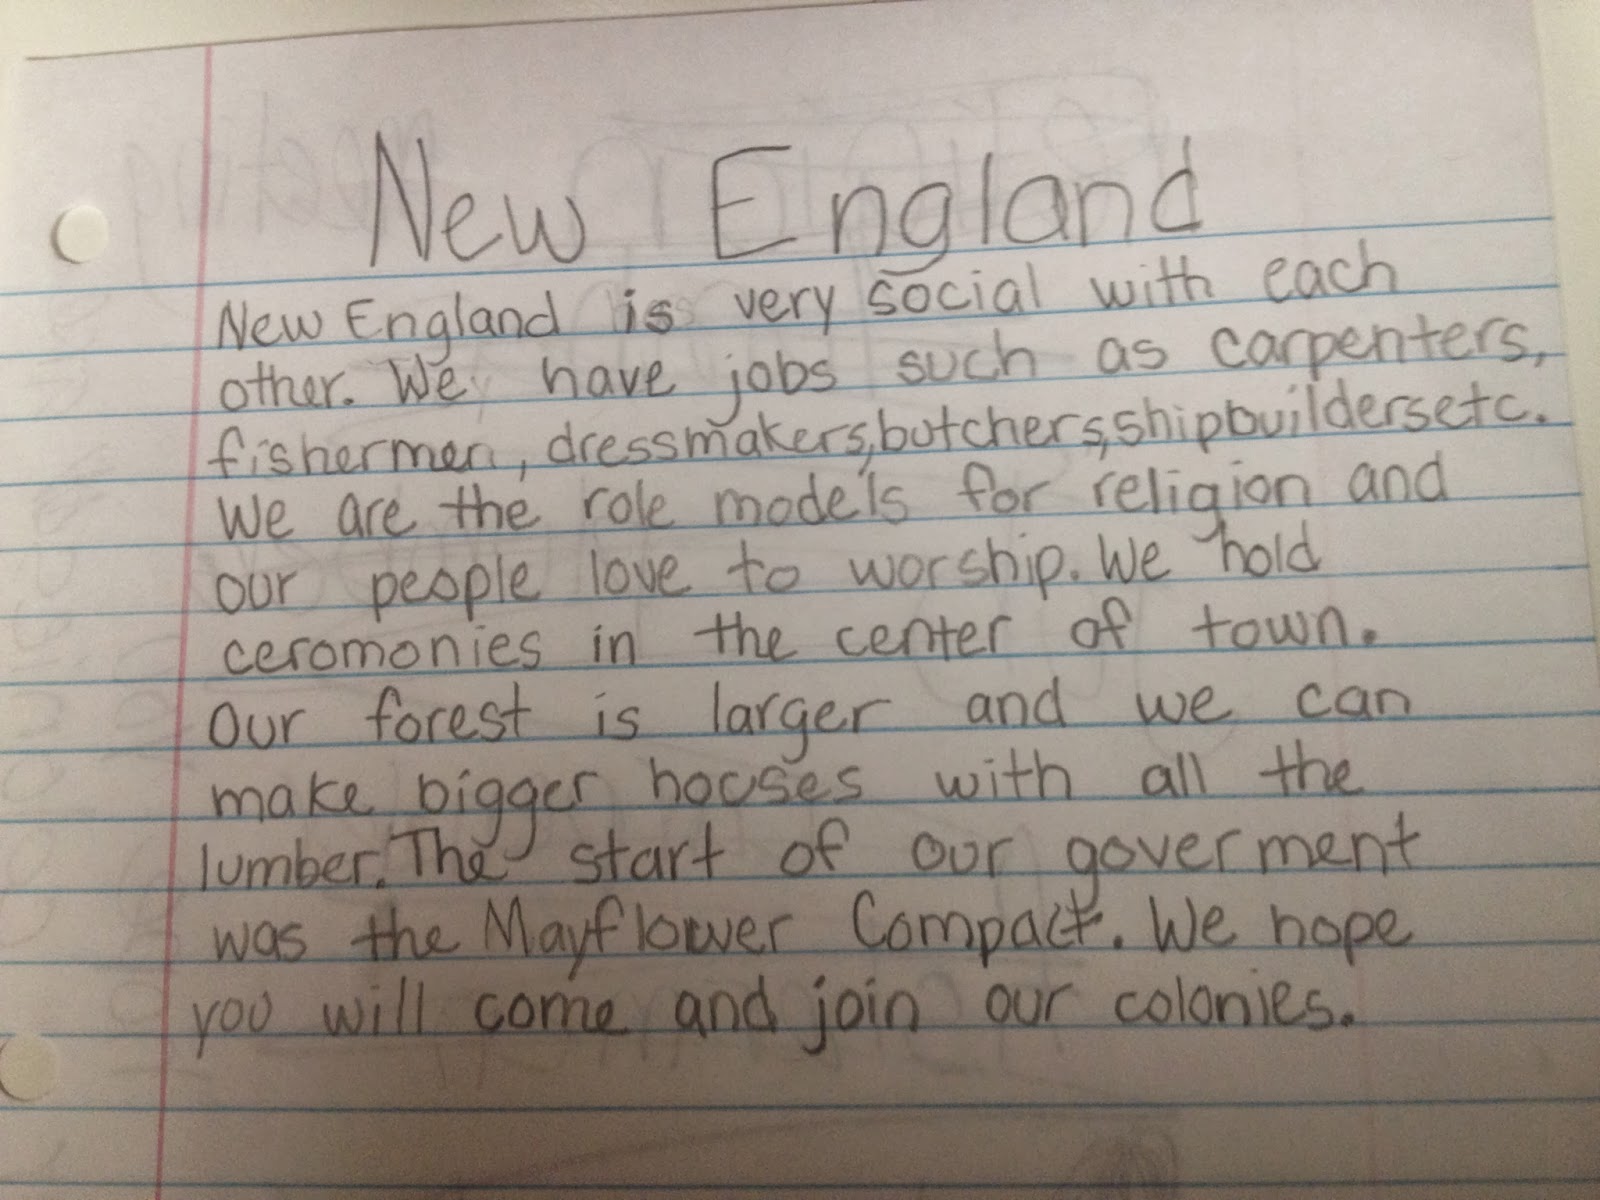 New England
New England is very social with each
other. We have jobs such as carpenters,
fishermen, dressmakers,butchers,shipbuildersetc.
We are the role models for religion and
our people love to worship. We hold
ceromonies in the center of town.
Our forest is larger and we can
make bigger houses with all the
lumber. The start of our goverment
was the Mayflower Compact. We hope
you will come and join our colonies.